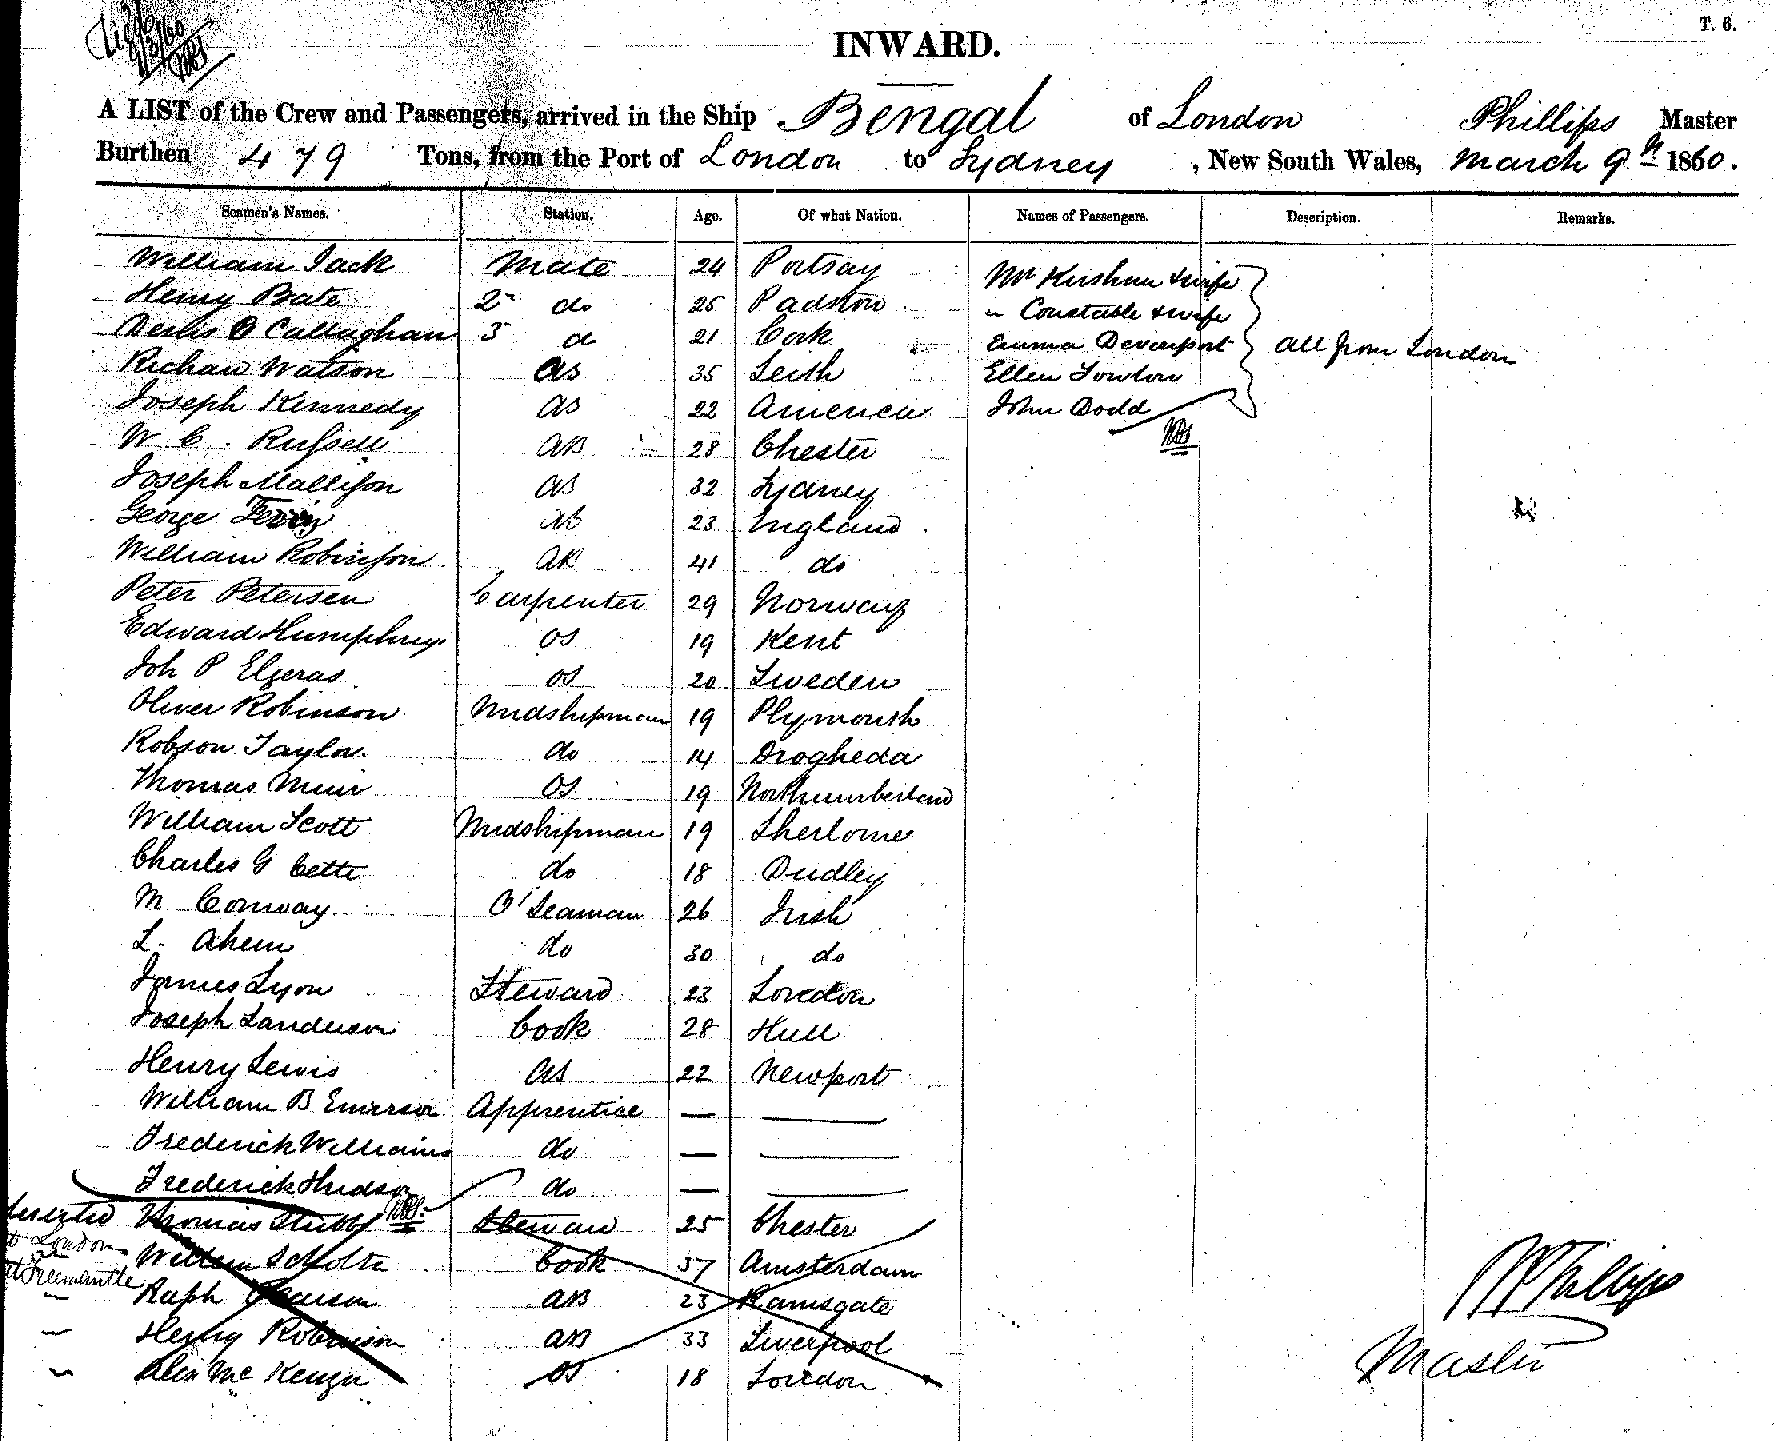 T. 6.
INWARD.
A LIST of the Crew and Passengers, arrived in the Ship Bengal of London Phillips Master
Burthen 479 Tons, from the Port of London to Sydney, New South Wales, March 9th 1860.
Seamen's Names. Station. Age. Of what Nation. Names of Passengers. Description. Remarks.
William Jack Mate 24 Portsay Mr & wife
Henry Bate 2 do 25 Padstow " Constable & wife
Denis O Callaghan 3 d 21 Cork Emma Devenport All from London
Richard Watson AS 35 Leith Ellen
Joseph Kennedy AS 22 America John Dodd
W C. Russell AB 28 Chester
Joseph Mallison AS 32 Sydney
George AB 23 England
William Robinson AB 41 do
Peter Petersen Carpenter 29 Norway
Edward Humphreys OS 19 Kent
Joh P Elgeras OS 20 Sweden
Oliver Robinson Midshipman 19 Plymouth
Robson Taylor do 14 Drogheda
Thomas Muir OS 19 Northumberland
William Scott Midshipman 19
Charles G Cette do 18 Dudley
M Conway O'Seaman 26 Irish
L. Ahern do 30 do
James Lyon Steward 23 London
Joseph Sanderson Cook 28 Hull
Henry Lewis AS 22 Newport
William B Emerson Apprentice —
Frederick Williams do —
Frederick Hudson do —
deserted Thomas Stubbs Steward 25 Chester
at London Willem Scholte Cook 37 Amsterdam
at Freemantle Raph Pearson AB 23 Ramsgate
" Henry Robinson AB 33 Liverpool
" Alex McKenzie OS 18 London
Phillips
Master